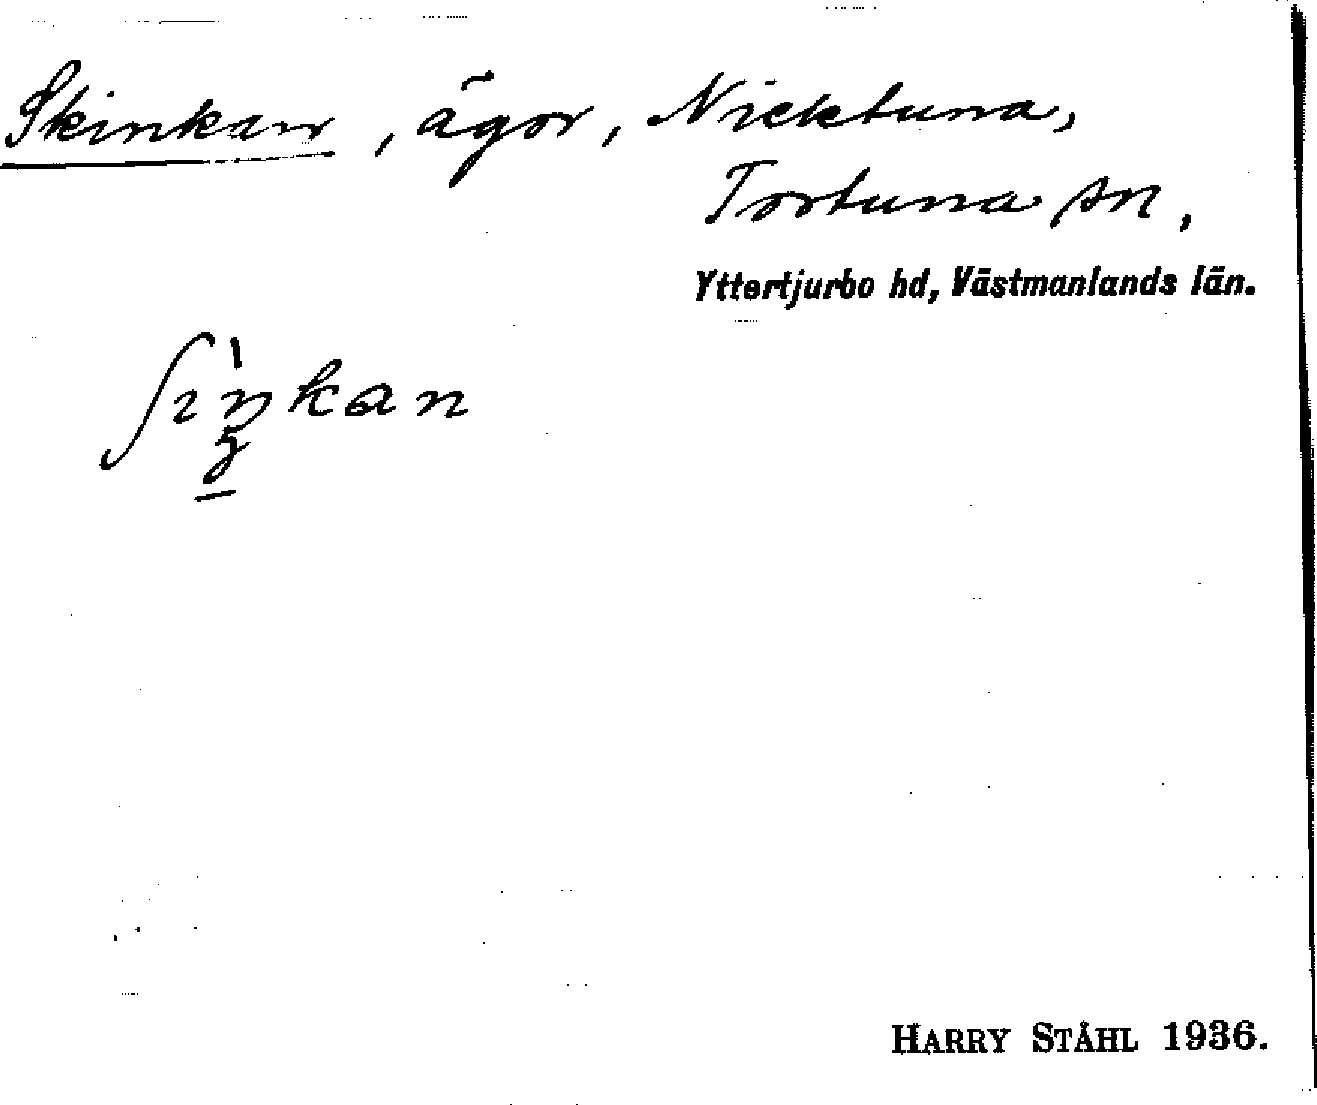 Skinkan, ägor, Nicktuna,
Tortuna sn,
Yttertjurbo hd, Västmanlands län.
ʃıŋ̀kan
HARRY STÅHL 1936.